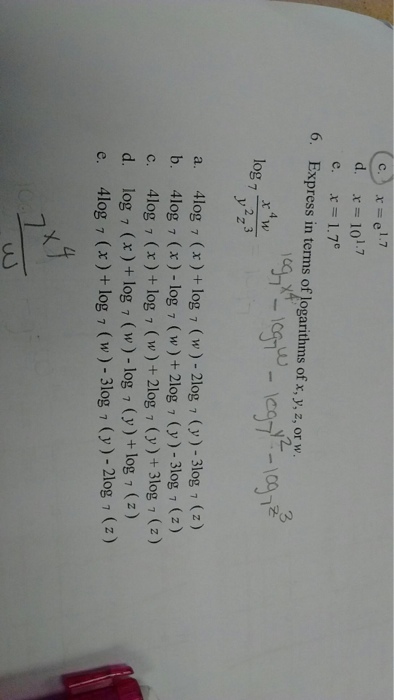 c. x = e^1.7
d. x = 10^1.7
e. x = 1.7^e
6. Express in terms of logarithms of x, y, z, or w.
log₇ x⁴w / y²z³
log₇x⁴ - log₇w - log₇y² - log₇z³
a. 4log ₇ (x) + log ₇ (w) - 2log ₇ (y) - 3log ₇ (z)
b. 4log ₇ (x) - log ₇ (w) + 2log ₇ (y) - 3log ₇ (z)
c. 4log ₇ (x) + log ₇ (w) + 2log ₇ (y) + 3log ₇ (z)
d. log ₇ (x) + log ₇ (w) - log ₇ (y) + log ₇ (z)
e. 4log ₇ (x) + log ₇ (w) - 3log ₇ (y) - 2log ₇ (z)
7x⁴
w